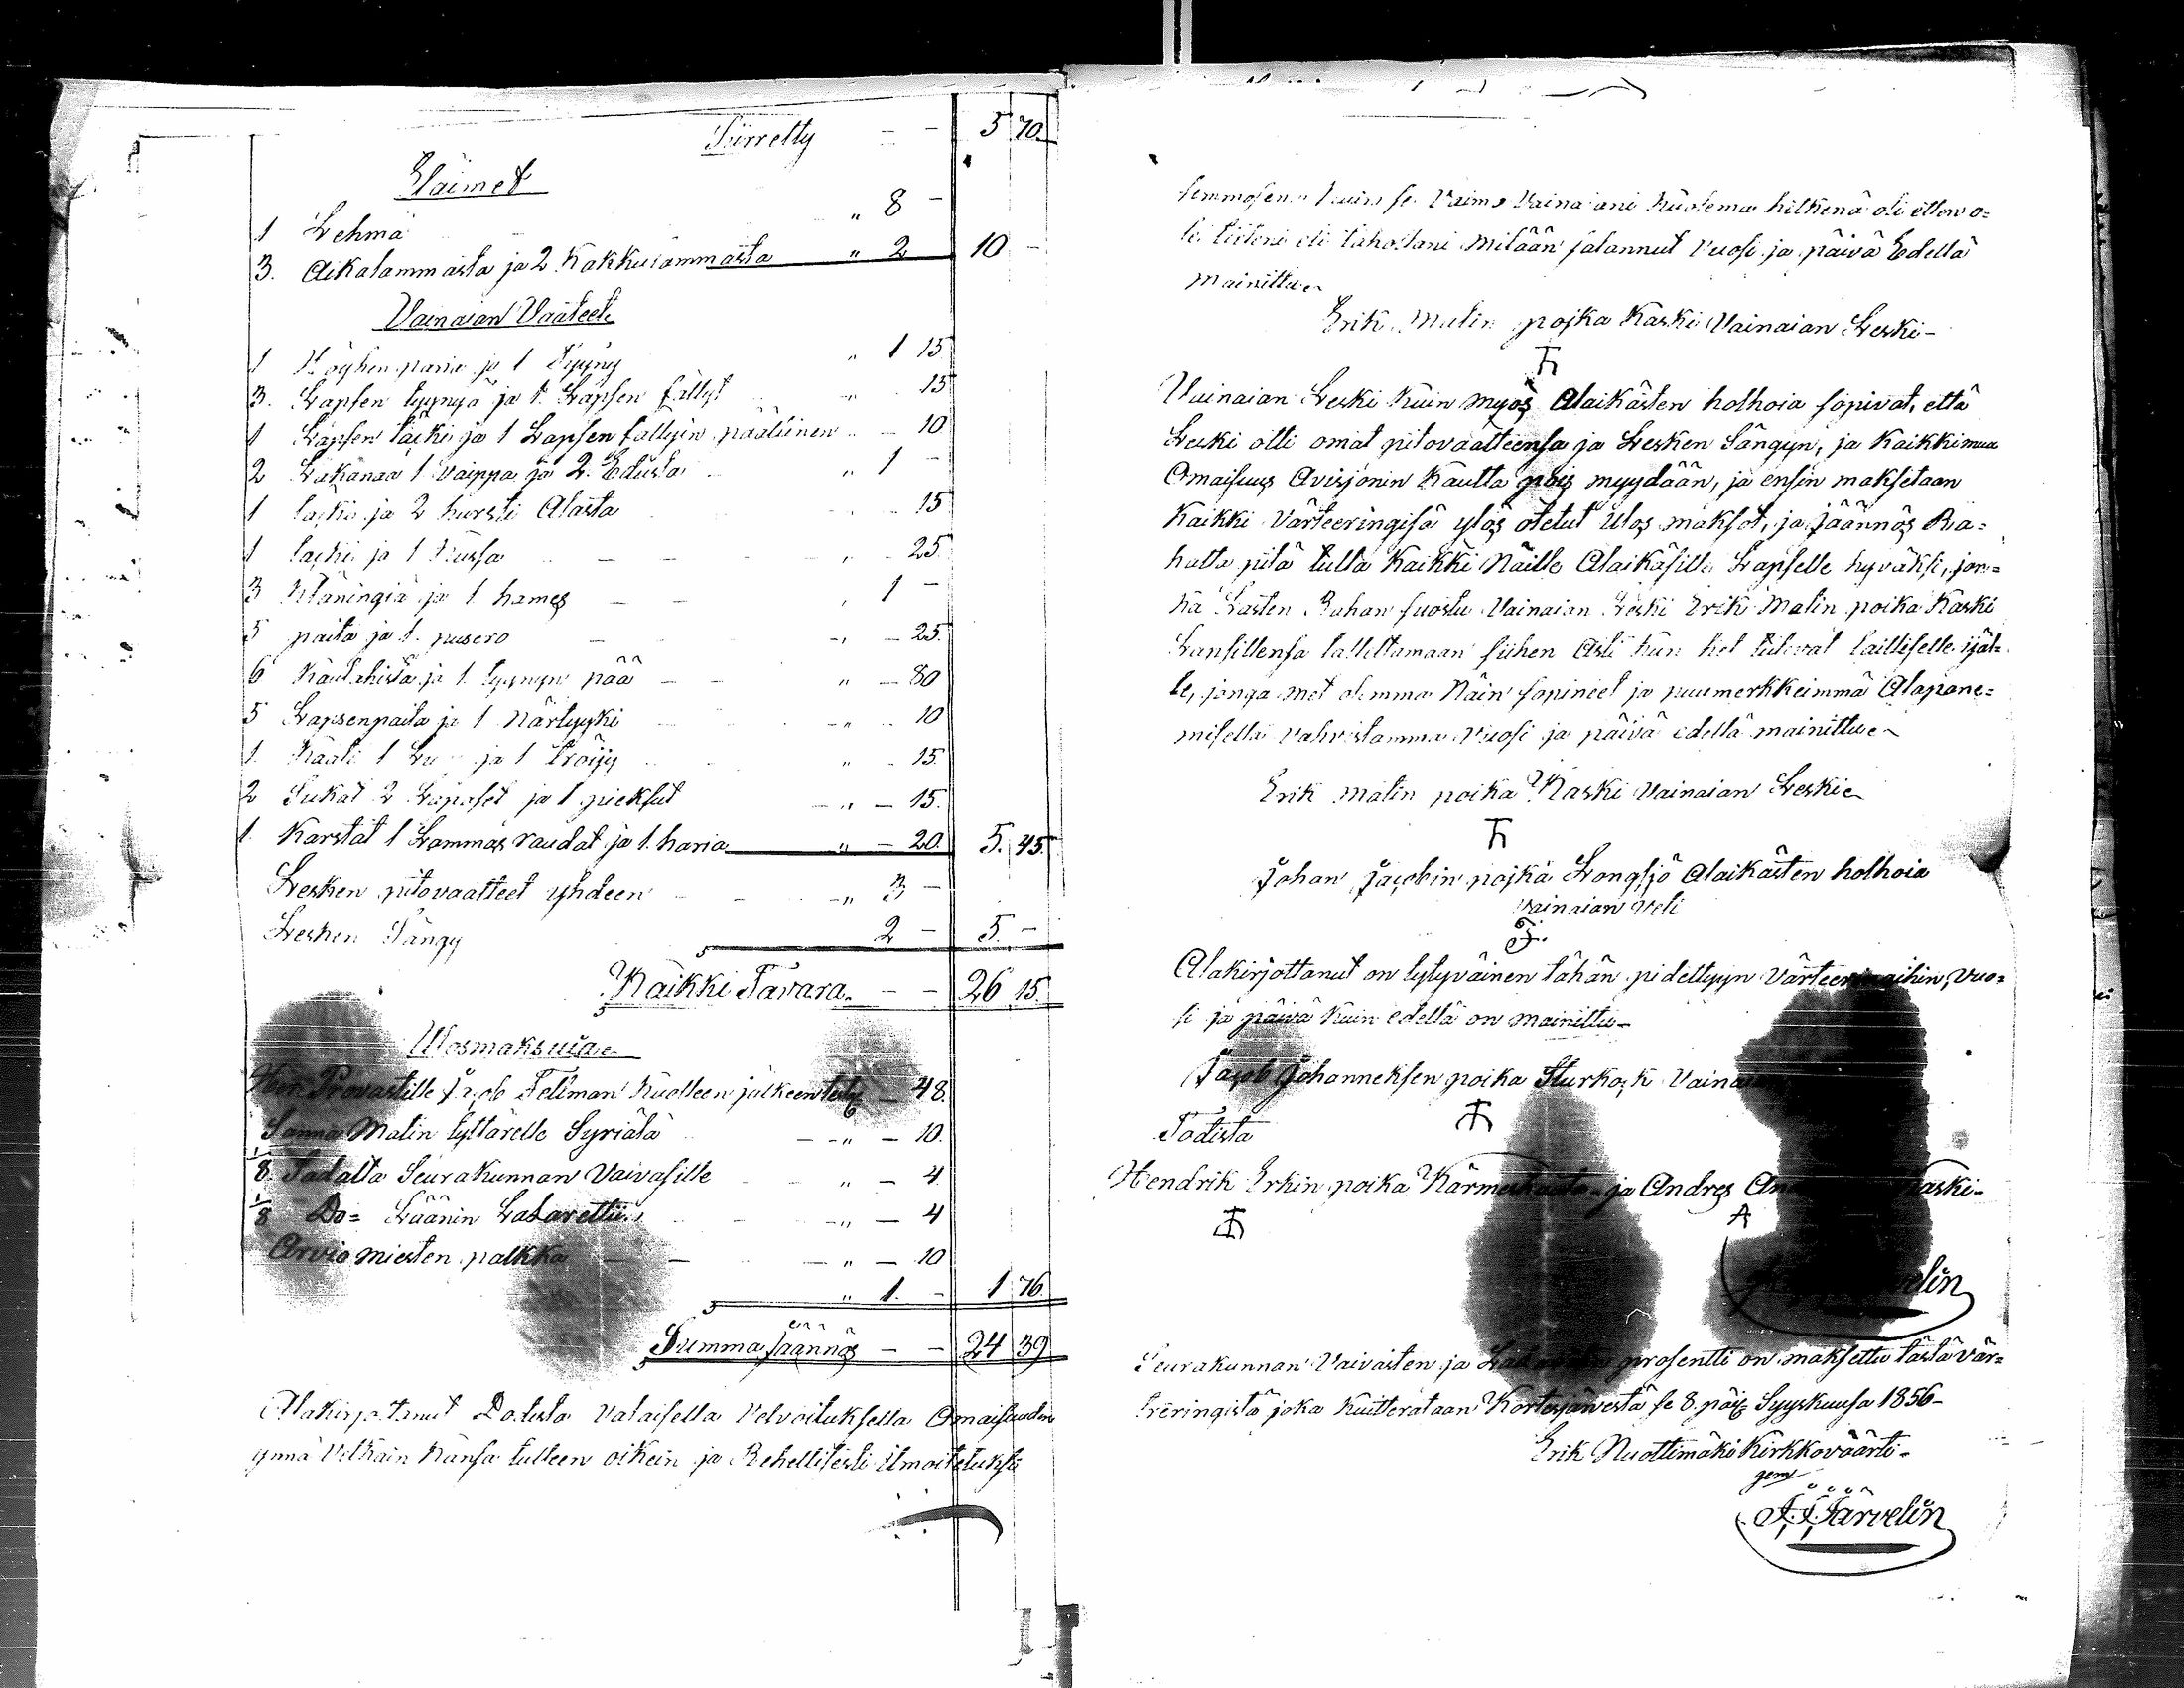 Siirretty - - 5 70.
Eläimet
1 Lehmä „ 8 -
3. Aikalammasta ja 2 Kakkulammasta „ 2 10 -
Vainaian Vaateet
1 paria ja 1 Tyyny „ 1 15
3. Lapsen tyynyä ja 1 Lapsen fällyt „ 15
1 Lapsen täcki ja 1 Lapsen fällyin päälinen - 10
2 Lakanaa 1 Vaippa ja 2. Edusta „ 1 -
1 täcki ja 2 hursti Alasta - 15
1 täcki ja 1 Russa - - „ - 25
3 Kläningiä ja 1 hames - - „ 1 -
5 paita ja 1. pusero - „ - 25.
6 Kaulahista ja 1. tyynyn pää - - „ - 80
5 Lapsenpaita ja 1 Närtyyki - „ - 10
1. Kaali 1 ja 1 tröijy „ - 15.
2 Sukat 2 Lapaset ja 1 pieksut - „ - 15.
1. Karstat 1 Lammas raudat ja 1. haria „ - 20. 5. 45.
Lesken pitovaatteet yhdeen - - - „ 3 -
Lesken Sängy 2 - 5. -
Kaikki Tavara. - - 26 15.
Ulosmaksuia
Herr Provastille Jacob Fellman Kuolleen jälkeen - 48.
Sanna Matin tyttärelle Syriälä - „ - 10.
1/8 Sadalta Seurakunnan Vaivasille „ - 4
1/8 Do= Läänin Lasarettiin - „ - 4
Arvio miesten palkka - - - „ - 10
„ 1. - 1 76.
Summa Jäännös - - 24 39
Alakirjotanut Todista Valaisella Velvoituksella Omaisuuden
ynnä Velkain Kansa tulleen oikein ja Rehellisesti ilmoitetuksi
semmosena kuin se Vaimo Vainaiani Kuolema hetkenä oli etten o=
le tieteni eli tahostani mitään salannut Vuosi ja päivä Edellä
mainittu
Erik Matin pojka Kaski Vainaian Leski-
Vainaian Leski Kuin myös Alaikästen holhoia sopivat, että
Leski otti omat pitovaatteensa ja Lesken Sängyn, ja Kaikki muu
Omaisuus Avisjonin Kautta pois myydään, ja ensin maksetaan
Kaikki Värteeringisä ylös otetut Ulos maksot, ja Jäännös Ra=
hatta pitä tulla Kaikki Näille Alaikäsille Lapselle hyväksi, jon=
ka Lasten Rahan suostu Vainaian Leski Erik Matin poika Kaski
Lansillensa tallettamaan siihen Asti kun het tulevat lailliselle ijäl-
le, jonga met olemma Näin sopineet ja puumerkkeimmä Alapane=
misella vahvistamma Vuosi ja päivä edellä mainittu
Erik Matin poika Kaski Vainaian Leski
Johan Jacobin pojka Longsjö Alaikästen holhoia
vainaian Veli
Alakirjottanut on tytyväinen tähän pidettyyn Värteeringihin, Vuo=
si ja päivä kuin edellä on mainittu-
Jacob Johanneksen poika Sturkoski
Todista
Hendrik Erkin poika ja Andres Kaski-
A
Seurakunnan Vaivaisten ja prosentti on maksettu tästä Vär=
teeringistä joka kuitterataan Kortesjärvestä se 8. päiv Syyskuusa 1856-
Erik Nuottimäki Kirkkoväärti-
gem
J. J. Järvelin